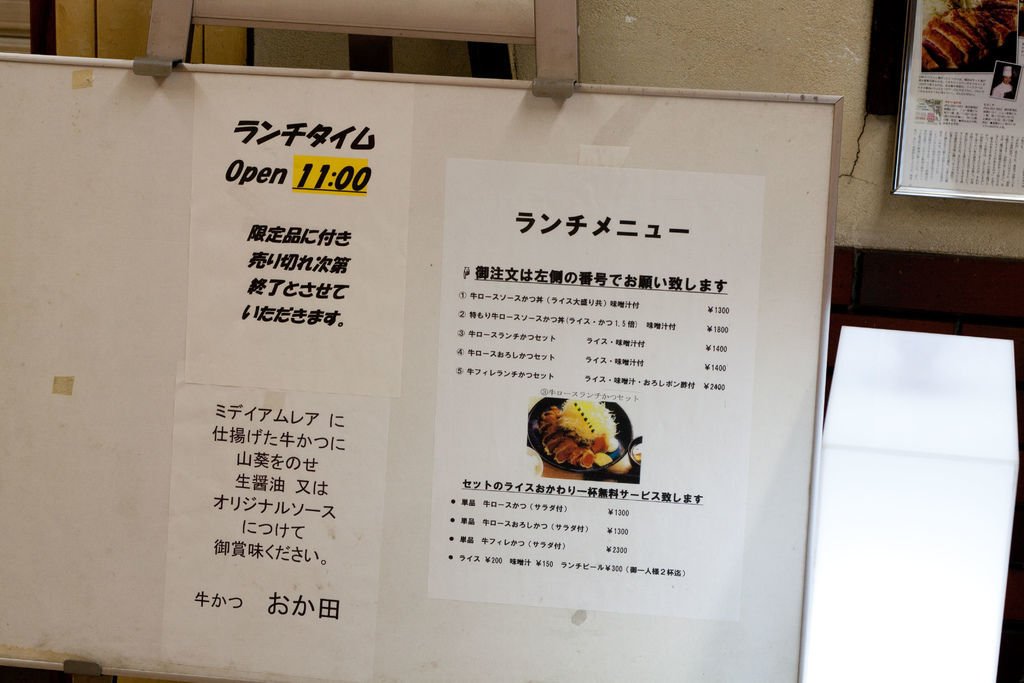 ランチタイム
Open 11:00
限定品に付き
売り切れ次第
終了とさせて
いただきます。
ミデイアムレア に
仕揚げた牛かつに
山葵をのせ
生醤油 又は
オリジナルソース
につけて
御賞味ください。
牛かつ おか田
ランチメニュー
御注文は左側の番号でお願い致します
① 牛ロースソースかつ丼（ライス大盛り共）味噌汁付 ¥1300
② 特もり牛ロースソースかつ丼(ライス・かつ1.5倍) 味噌汁付 ¥1800
③ 牛ロースランチかつセット ライス・味噌汁付 ¥1400
④ 牛ロースおろしかつセット ライス・味噌汁付 ¥1400
⑤ 牛フィレランチかつセット ライス・味噌汁・おろしポン酢付 ¥2400
③牛ロースランチかつセット
セットのライスおかわり一杯無料サービス致します
● 単品 牛ロースかつ（サラダ付） ¥1300
● 単品 牛ロースおろしかつ（サラダ付） ¥1300
● 単品 牛フィレかつ（サラダ付） ¥2300
● ライス ¥200 味噌汁 ¥150 ランチビール¥300（御一人様２杯迄）